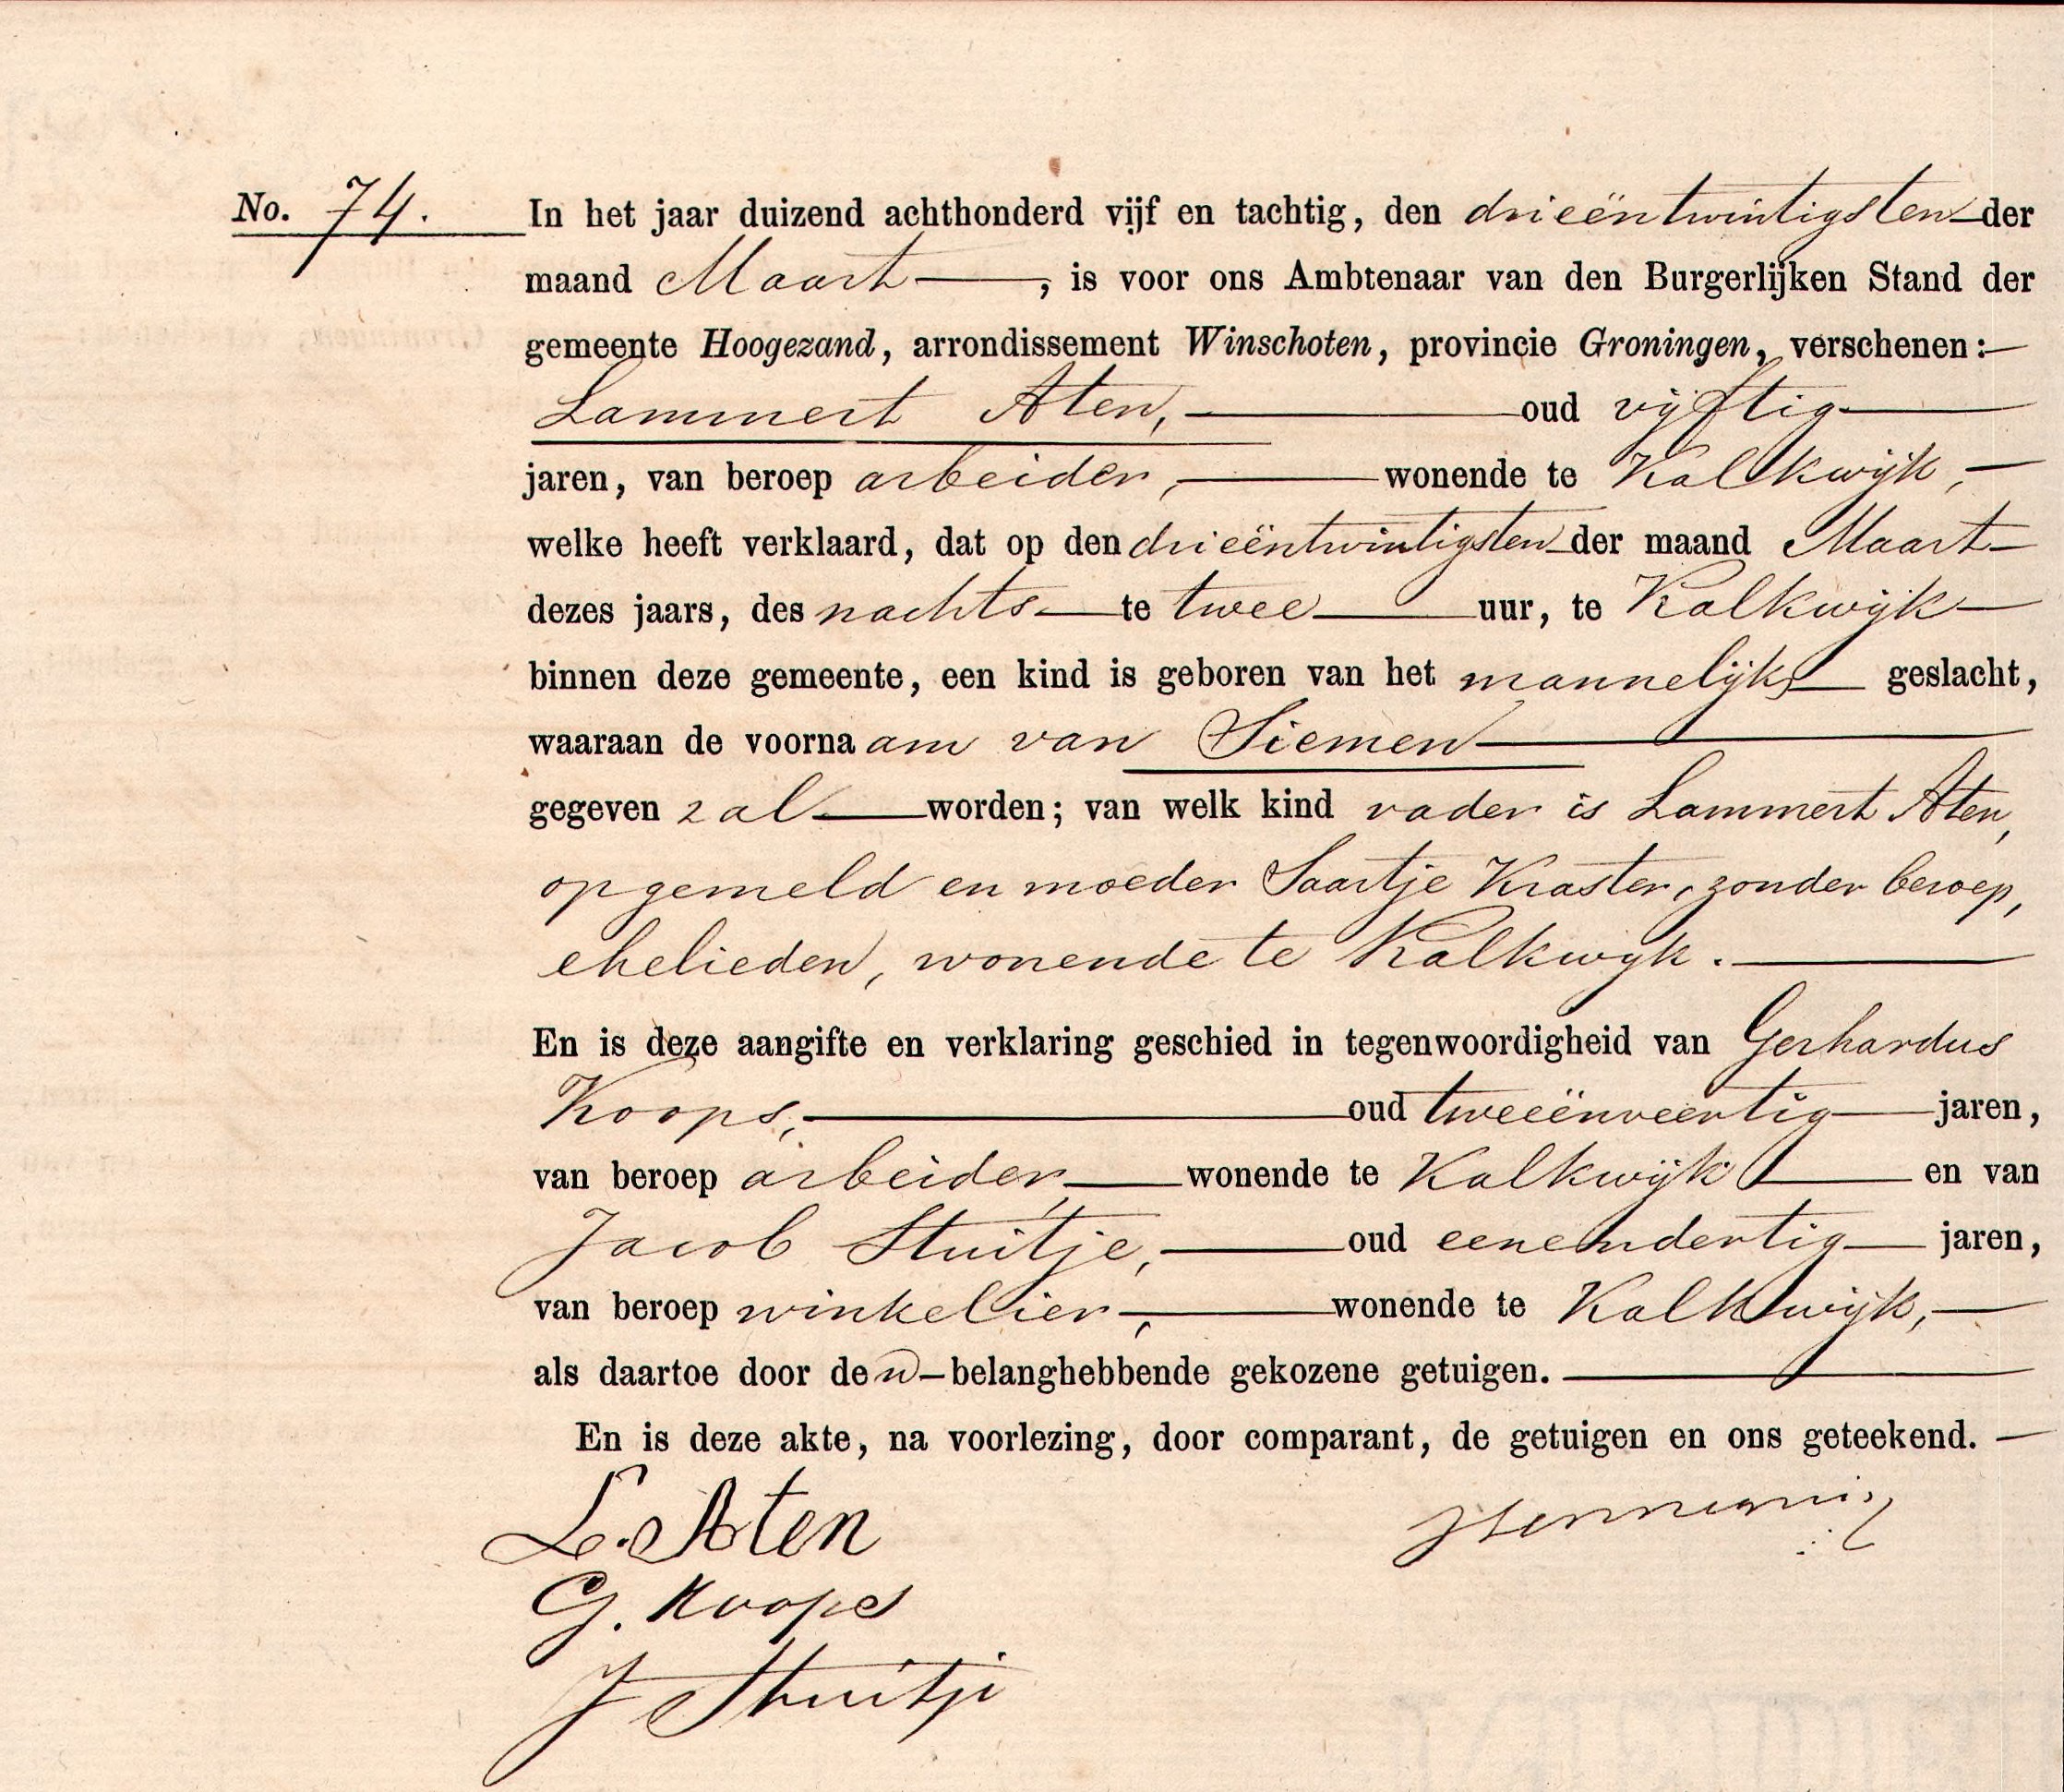 No. 74. In het jaar duizend achthonderd vijf en tachtig, den drieëntwintigsten der
maand Maart, is voor ons Ambtenaar van den Burgerlijken Stand der
gemeente Hoogezand, arrondissement Winschoten, provincie Groningen, verschenen:
Lammert Aten, oud vijftig
jaren, van beroep arbeider, wonende te Kalkwijk,
welke heeft verklaard, dat op den drieëntwintigsten der maand Maart
dezes jaars, des nachts te twee uur, te Kalkwijk
binnen deze gemeente, een kind is geboren van het mannelijk geslacht,
waaraan de voornaam van Siemen
gegeven zal worden; van welk kind vader is Lammert Aten,
opgemeld en moeder Saartje Kraster, zonder beroep,
ehelieden, wonende te Kalkwijk.
En is deze aangifte en verklaring geschied in tegenwoordigheid van Gerhardus
Koops, oud tweeënveertig jaren,
van beroep arbeider, wonende te Kalkwijk en van
Jacob Stuitje, oud eenendertig jaren,
van beroep winkelier, wonende te Kalkwijk,
als daartoe door den belanghebbende gekozene getuigen.
En is deze akte, na voorlezing, door comparant, de getuigen en ons geteekend.
L. Aten
G. Koops
J Stuitje